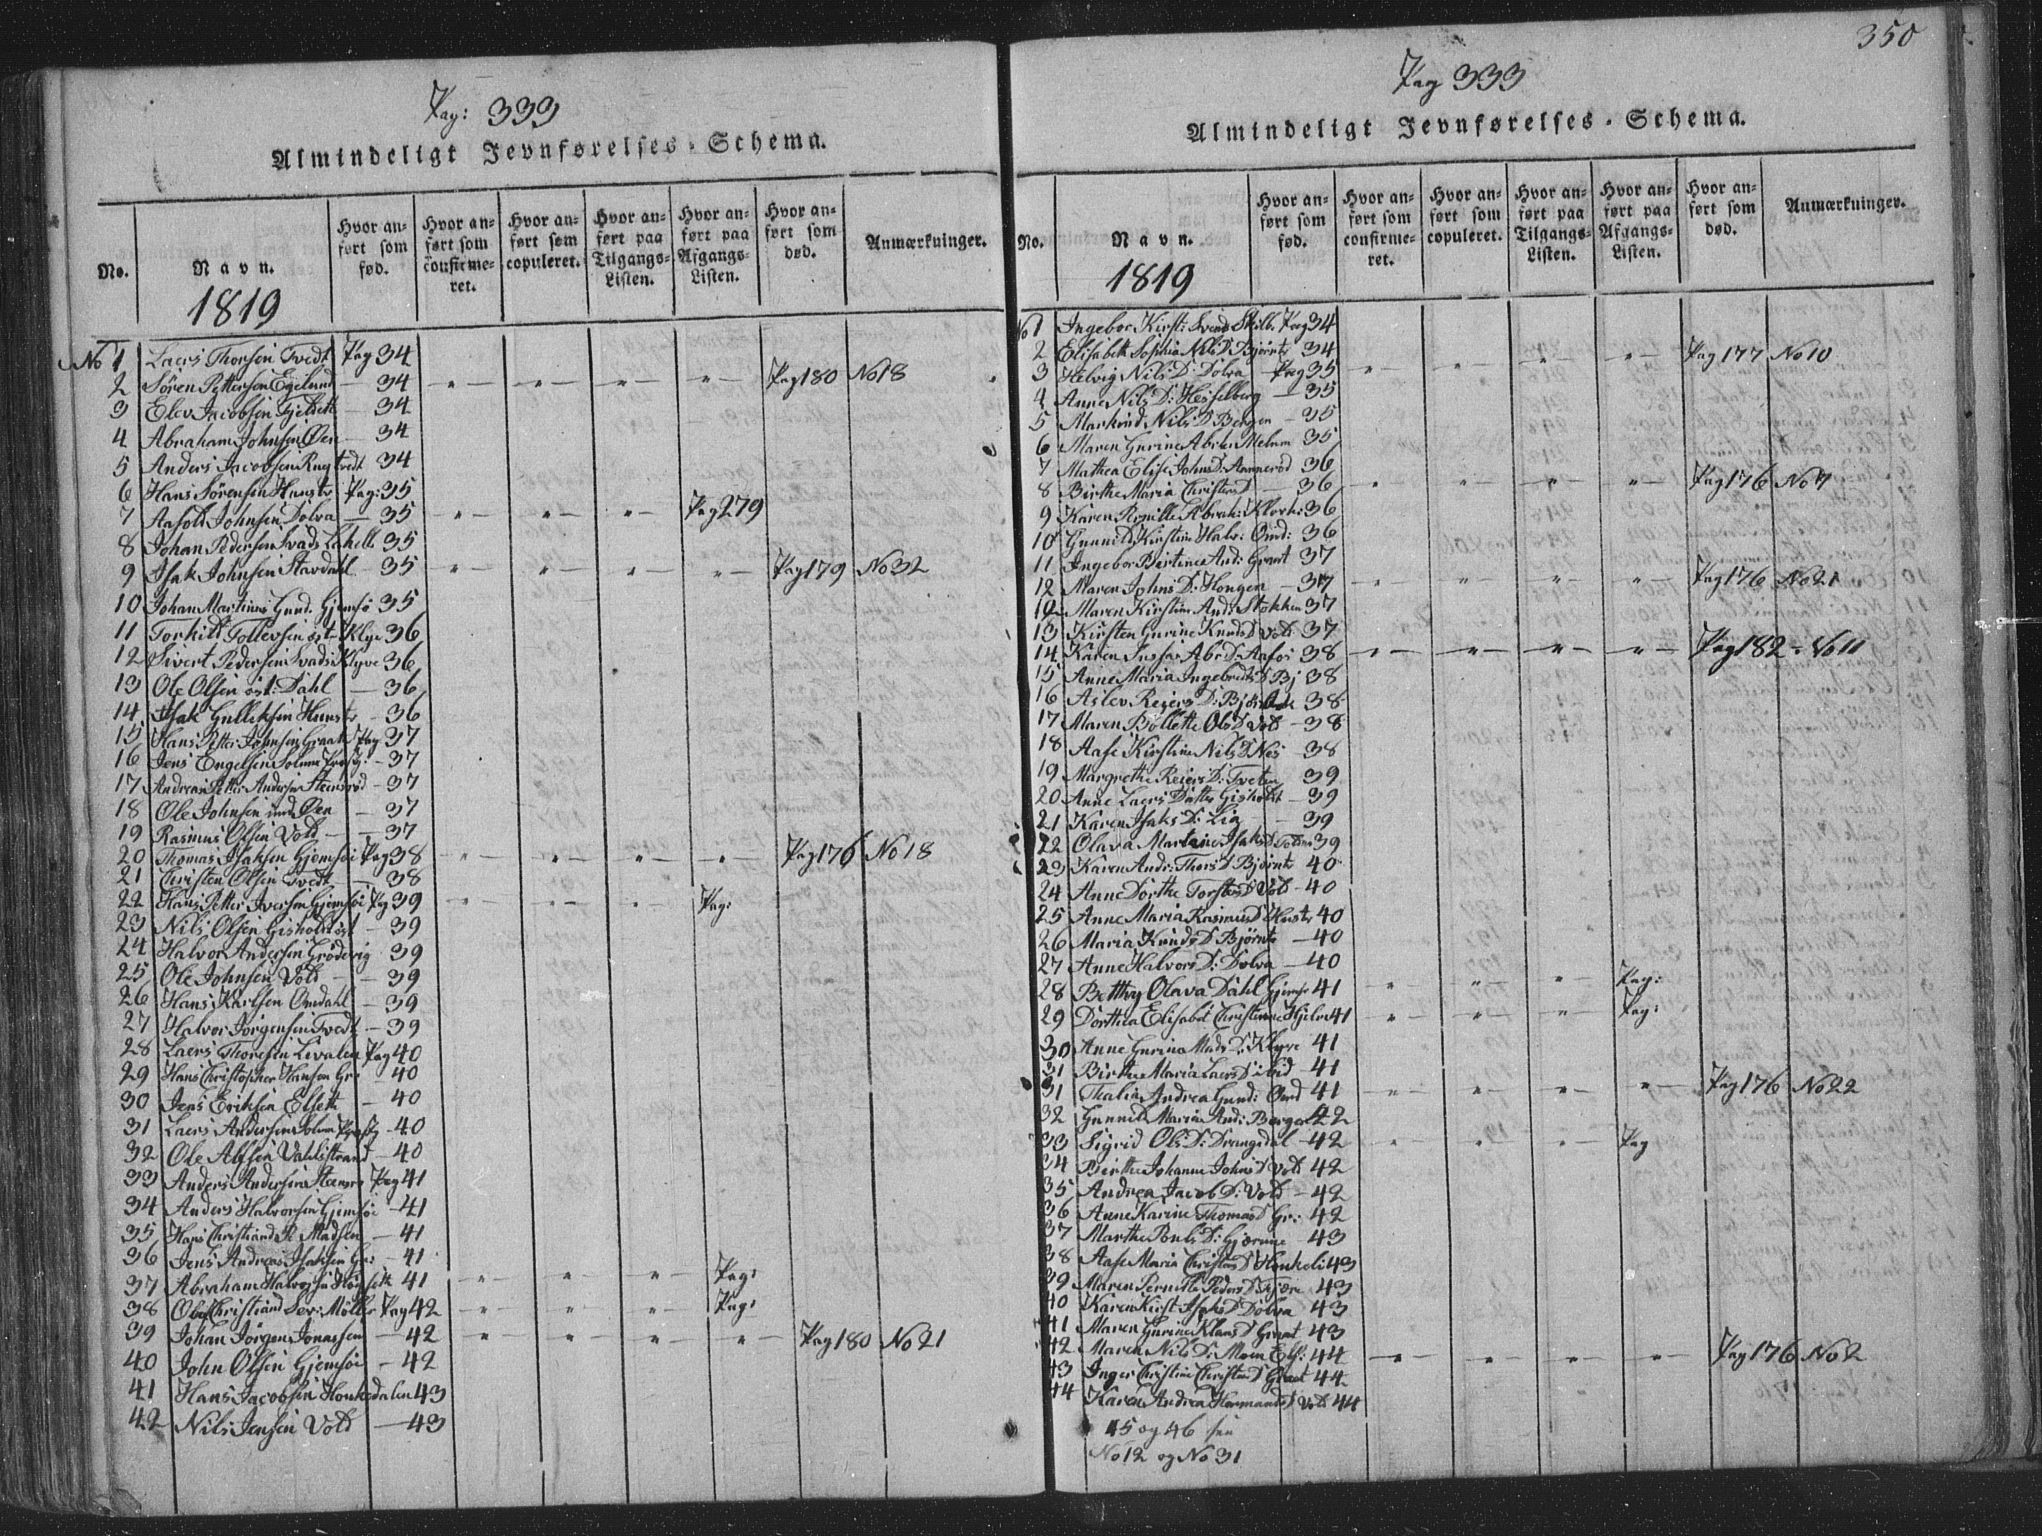 Pag: 333
Almindeligt Jevnførelses-Schema.
No.
Navn.
1819
Hvor anført som fød.
Hvor anført som confirmeret.
Hvor anført som copuleret.
Hvor anført paa Tilgangs-Listen.
Hvor anført paa Afgangs-Listen.
Hvor anført som død.
Anmærkninger.
No 1 Laers Thorsen Tvedt Pag 34
2 Søren Pettersen Egelund — 34 " " " " Pag 180 No 18
3 Elev Jacobsen Fjelseth — 34
4 Abraham Johnsen Øen — 34
5 Anders Jacobsen Rugtvedt 34
6 Hans Sørensen Hunstv Pag: 35
7 Aasold Johnsen Dolva — 35 " " " Pag 279
8 Johan Pedersen Svads 35
9 Isak Johnsen Stavdahl — 35 " " " " Pag 179 No 32
10 Johan Martinus Gund. Gjemsø 35
11 Torkild Tollevsen øst- Klyv 36
12 Sivert Pedersen Svads Klyve 36
13 Ole Olsen øst: Dahl — 36
14 Isak Gulliksen Hunstv - 36
15 Hans Petter Johnsen Graat Pag 37
16 Jens Engelsen Solum - 37
17 Andreas Petter Andersen Steensrød - 37
18 Ole Johnsen Øen - 37
19 Rasmus Olsen Vold — 37
20 Thomas Isaksen Gjemsøi Pag 38 " " " " Pag 176 No 18
21 Christen Olsen Tvedt — 38
22 Hans Petter Iversen Gjemsøi Pag 39 " " " Pag:
23 Nils Olsen Gisholdt øst - 39
24 Halvor Andersen Grødevig - 39
25 Ole Johnsen Vold — 39
26 Hans Karlsen Omdahl - 39
27 Halvor Jørgensen Tvedt - 39
28 Laers Thoresen Livalen Pag 40
29 Hans Christopher Hansen Gr: 40
30 Jens Eriksen Elseth - 40
31 Laers Andersen Solum - 40
32 Ole Absen Vahlstrand - 40
33 Anders Andersen Steensr Pag 41
34 Anders Halvorsen Gjemsøi - 41
35 Hans Christiand R. Madsen — 41
36 Jens Andreas Isaksen Gr: - 41
37 Abraham Halvorsen 41 " " " Pag:
38 Christiand Sev: Møller Pag 42 " " " Pag:
39 Johan Jørgen Jonassen — 42 " " " " Pag 180 No 21
40 John Olsen Gjemsøi - 42
41 Hans Jacobsen Honkedalen 43
42 Nils Jensen Vold — 43
350
Pag 333
Almindeligt Jevnførelses-Schema.
No.
Navn.
1819
Hvor anført som fød.
Hvor anført som confirmeret.
Hvor anført som copuleret.
Hvor anført paa Tilgangs-Listen.
Hvor anført paa Afgangs-Listen.
Hvor anført som død.
Anmærkninger.
No 1 Ingebor Kirst: Svends Skilb. Pag 34
2 Elisabeth Sophia Nils D Bjørntv 34 " " " " Pag 177 No 10
3 Helvig Nils D: Dolva — Pag 35
4 Anne Nils D: Hesselberg — 35
5 Nils D Bergen — 35
6 Maren Gurine Abrah Melum 35
7 Mathea Elise Johns D: Aannerød 36
8 Birthe Maria Christens D — 36 " " " " Pag 176 No 7
9 Karen Pernille Abrah: Klovh: 36
10 Gunnild Kirstine Halv: Omd: 36
11 Ingebor Bertine And: Graat 37
12 Maren Johns D: Hougen — 37 " " " " Pag 176 No 21
12 Maren Kirstine And: Stokken 37
13 Kirsten Gurine Knuds D Vold 37
14 Karen Abr D: Aafos 38 " " " " Pag 182 - No 11
15 Anne Maria Ingebrets D Bj 38
16 Aslev Reiers D: 38
17 Maren Bollette Ols D Vold - 38
18 Aase Kirstine Nils D Nes 38
19 Margrethe Reiers D: Tveten 39
20 Anne Laers Datter Gisholdt - 39
21 Karen Isaks D: Lia — 39
22 Olava Martine Isaks D 39
23 Karen Andr: Thors D Bjørntv 40
24 Anne Dorthe Torstens D Vold - 40
25 Anne Maria Rasmus D Hustv 40
26 Maria Knuds D Bjørntv — 40
27 Anne Halvors D: Dolva — 40
28 Betthy Olava Dahl Gjemsø 41 " " " Pag:
29 Dorthea Elisabet Christense Hjelm 41 " " " Pag:
30 Anne Gurina Mads D: Klyve 41
31 Birthe Maria Laers D ibid 41
31 Thalia Andrea Gund: Omd 41 " " " " Pag 176 No 22
32 Gunnild Maria And: Borge 42
33 Sigrid Ols D: Drangedal - 42 " " " Pag
34 Birthe Johanne Johns D Vold 42
35 Andrea Jacob D: Vold - 42
36 Anne Karine Thomas D Gr: 42
37 Marthe Pouls D: 43
38 Aase Maria Christens D Honkeli 43
39 Maren Pernille Peders D 43
40 Karen Kirst Isaks D Dolva 43
41 Maren Gurine Klaus D Graat 43
42 Maren Nils D: Moen Els: 44 " " " " Pag 176 No 2
43 Inger Christine Christens D Graat 44
44 Karen Andrea Hermands D Vold 44
45 og 46 see
No 12 og No 31